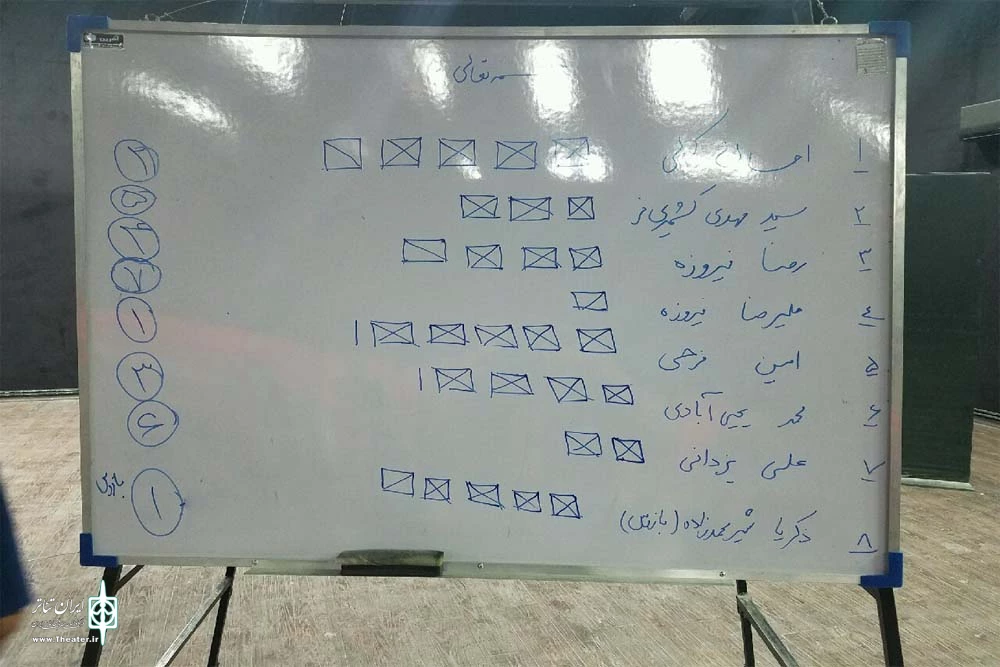 بسمه تعالی
۱ احسان
۲ سید مهدی کشمیری فر
۳ رضا فیروزه
٤ علیرضا فیروزه
۵ امین فرخی
۶ محمد یحیی آبادی
۷ علی یزدانی
۸ ذکریا شیرمحمدزاده (بازرس)
بازرس
ایران تئاتر
www.Theater.ir